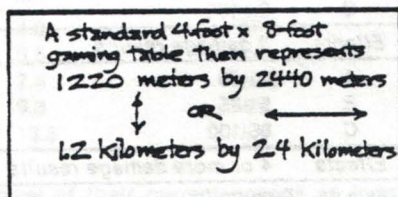 A standard 4-foot x 8-foot
gaming table then represents
1220 meters by 2440 meters
OR
1.2 kilometers by 2.4 kilometers